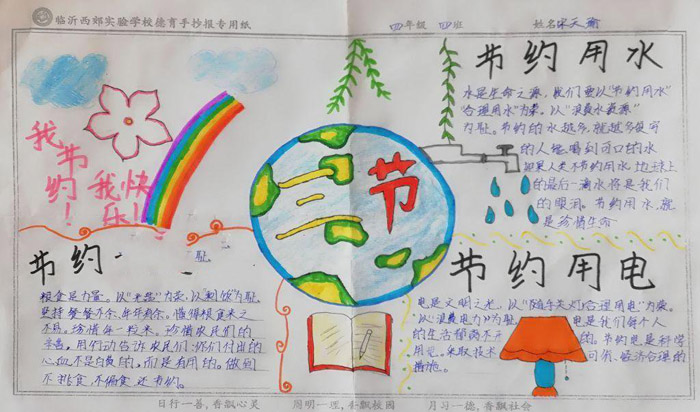 临沂西郊实验学校德育手抄报专用纸
四年级 四班
姓名
我节约!
我快乐!
三节
节约用水
水是生命之源。我们要以"节约用水"
"合理用水"为荣。以"浪费水资源"
为耻。节约的水越多,就越多
的人能喝到可口的水
如果人类不节约用水,地球上
的最后一滴水将是我们
的眼泪。节约用水,就
是珍惜生命
节约
耻。
粮食是力量。以"光盘"为荣,以"剩饭"为耻,
坚持餐餐不余,年年有余。懂得粮食来之
不易,珍惜每一粒米,珍惜农民们的
辛苦,用行动告诉农民们:你们付出的
心血不是白费的,而是有用的。做到
不挑食、不偏食
节约用电
电是文明之光,以"随手关灯合理用电"为荣。
以"浪费电力"为耻 电是我们每个人
的生活都离不开 的。节约电是科学
用电。采取技术 可行、经济合理的
措施。
日行一善,香飘心灵
周明一理,香飘校园
月习一德,香飘社会